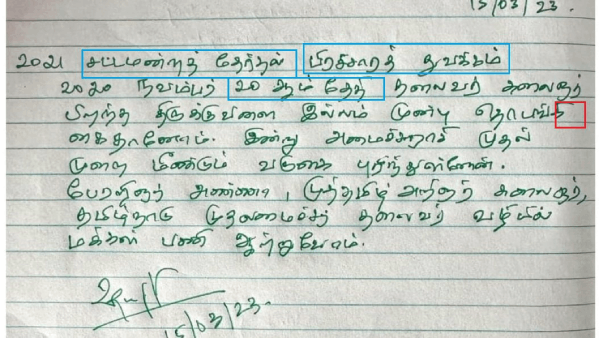 15/03/23.
2021 சட்டமன்றத் தேர்தல் பிரச்சாரத் துவக்கம்
2020 நவம்பர் 20 ஆம் தேதி தலைவர் கலைஞர்
பிறந்த திருக்குவளை இல்லம் முன்பு
கைதானோம். இன்று அமைச்சராகி முதல்
முறை மீண்டும் வருகை புரிந்துள்ளேன்.
பேரறிஞர் அண்ணா, முத்தமிழ் அறிஞர் கலைஞர்,
தமிழ்நாடு முதலமைச்சர் தலைவர் வழியில்
மக்கள் பணி ஆற்றுவோம்.
15/03/23.